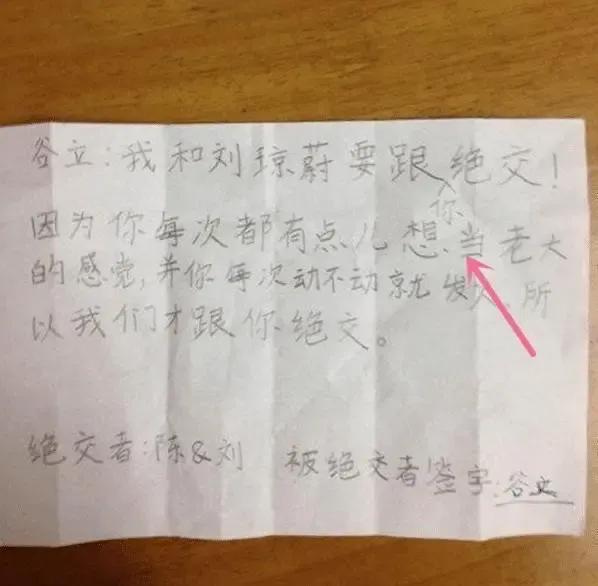 谷立:我和刘琼蔚要跟绝交!
你
因为你每次都有点儿想当老大
的感觉,并你每次动不动就发火,所
以我们才跟你绝交。
绝交者:陈&刘 被绝交者签字:谷立